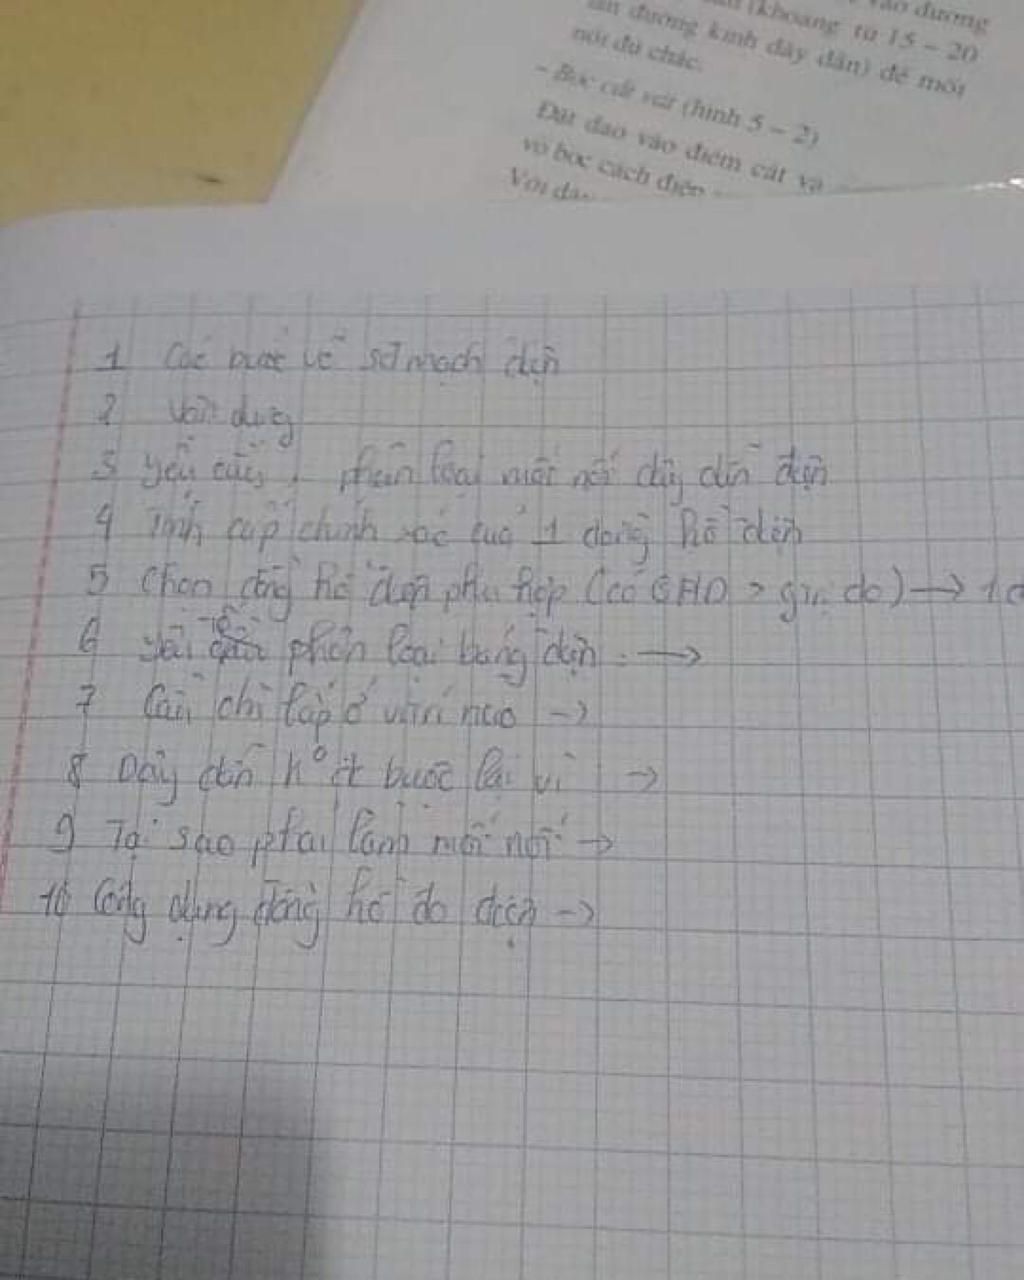 vào đường
(khoảng từ 15 - 20
lần đường kính dây dẫn) để mối
nối đủ chắc.
- Bóc cắt vát (hình 5 - 2)
Đặt dao vào điểm cắt và
vỏ bọc cách điện
Với dây
1 Các bước vẽ sơ mạch điện
2 Vận dụng
3 yêu cầu, phân loại mối nối dây dẫn điện
4 Tính cấp chính xác của 1 đồng hồ điện
5 Chọn đồng hồ điện phù hợp (có GHĐ > giá trị đo) → 1
6 phân loại bảng điện →
7 Cầu chì lắp ở vị trí nào →
8 Dây dẫn buộc lại vì →
9 Tại sao phải hàn mối nối →
10 Công dụng đồng hồ đo điện →